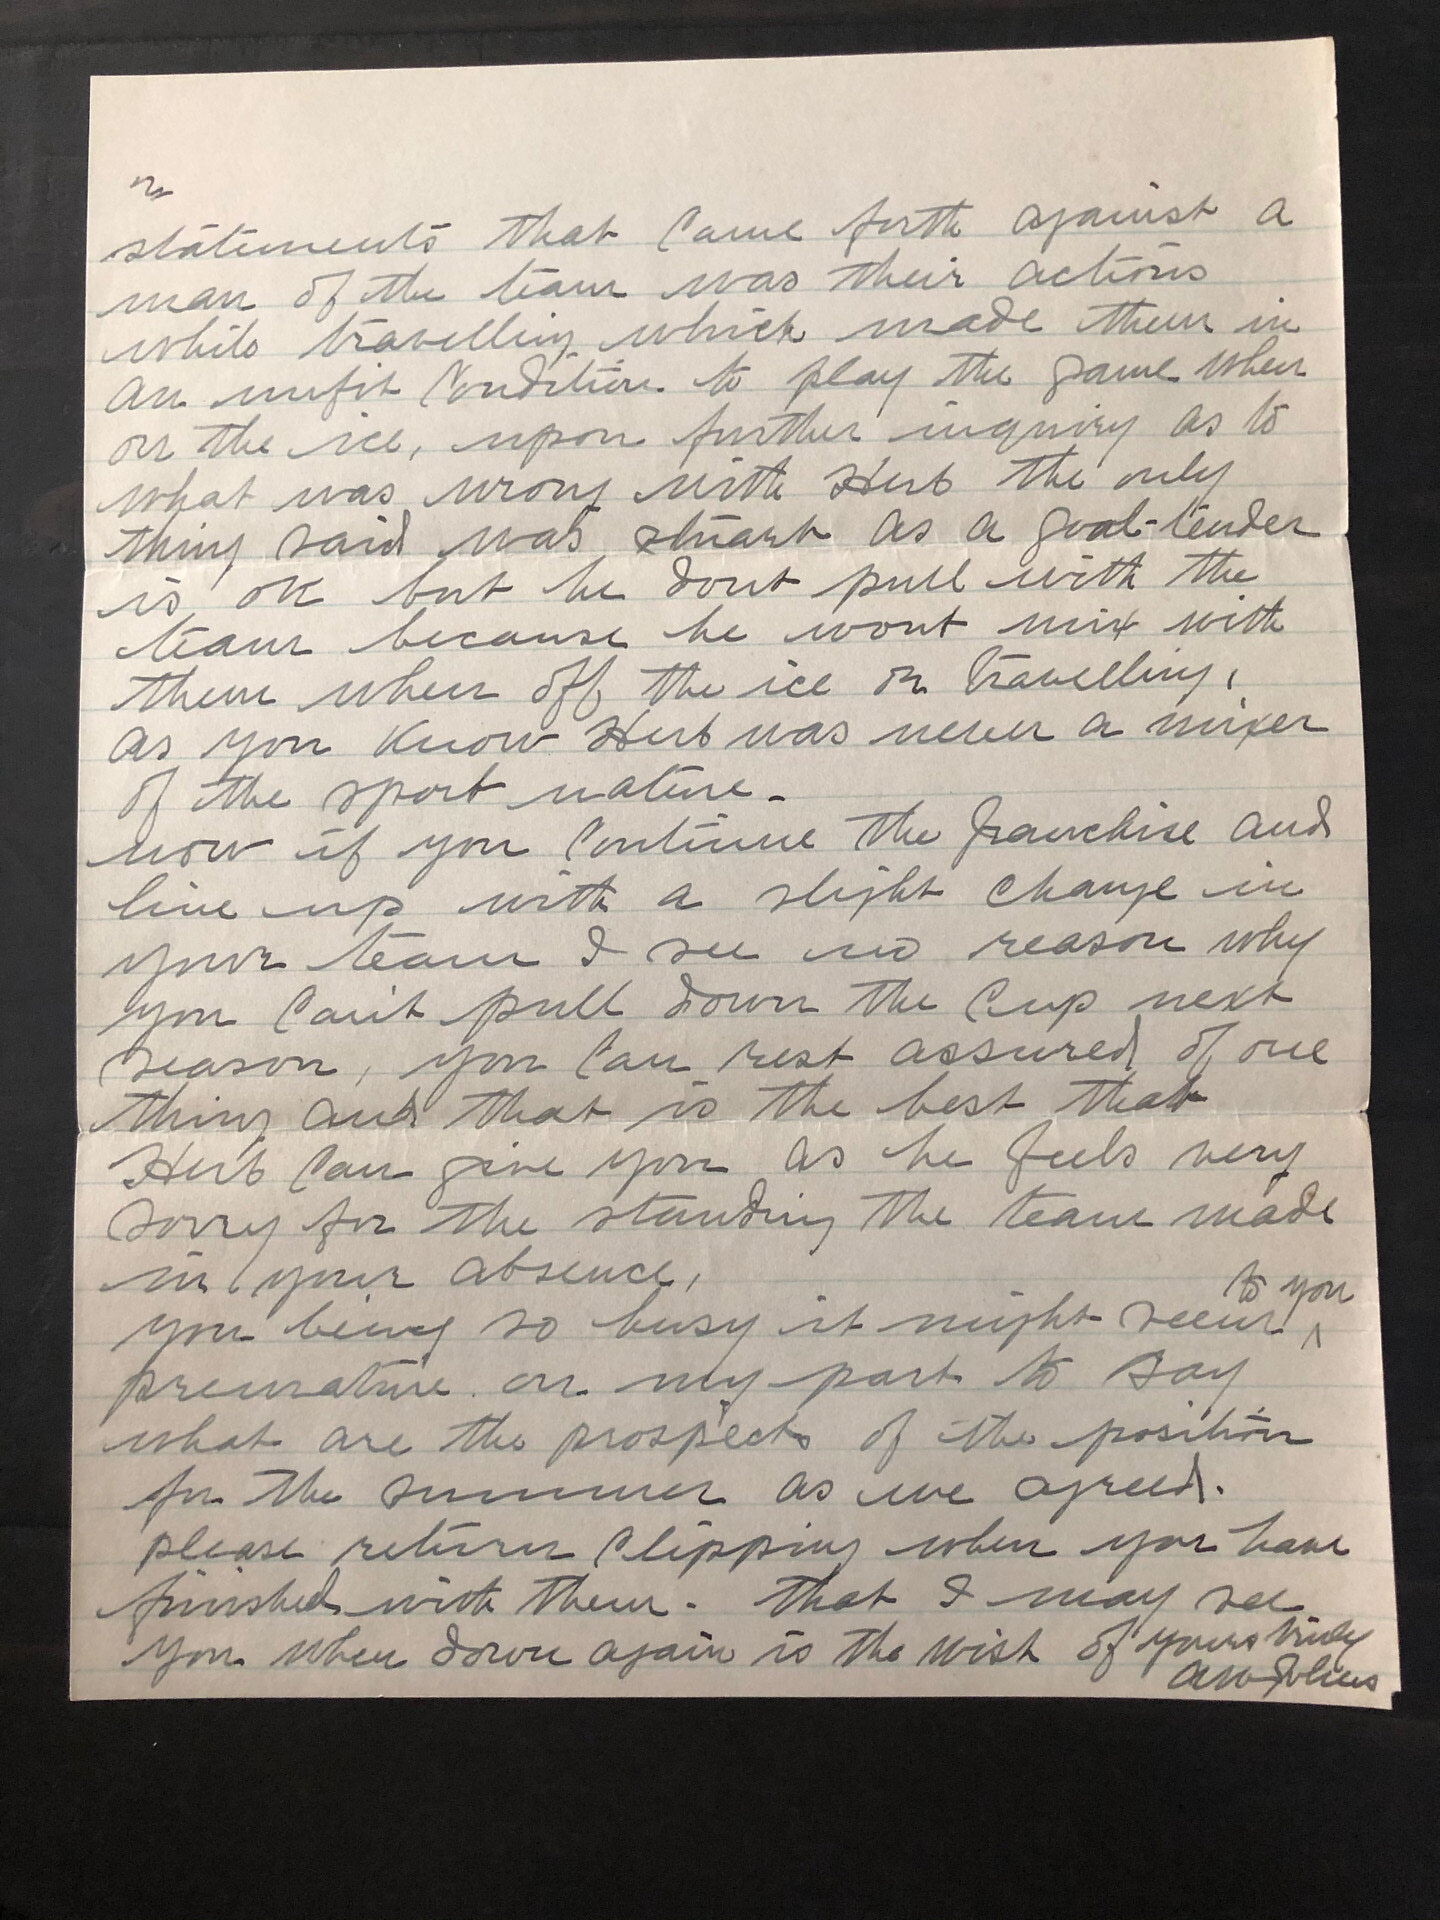 statements that came forth against a
man of the team was their actions
while travelling which made them in
an unfit condition to play the game when
on the ice, upon further inquiry as to
what was wrong with Herb the only
thing said was Stuart as a goal-tender
is OK but he dont pull with the
team because he wont mix with
them when off the ice or travelling,
as you know Herb was never a mixer
of the sport nature.
now if you continue the franchise and
line up with a slight change in
your team I see no reason why
you can't pull down the Cup next
season, you can rest assured of one
thing and that is the best that
Herb can give you as he feels very
sorry for the standing the team made
in your absence,
you being so busy it might seem to you
premature on my part to say
what are the prospects of the position
for the summer as we agreed.
please return clipping when you have
finished with them. that I may see
you when down again is the wish of yours truly